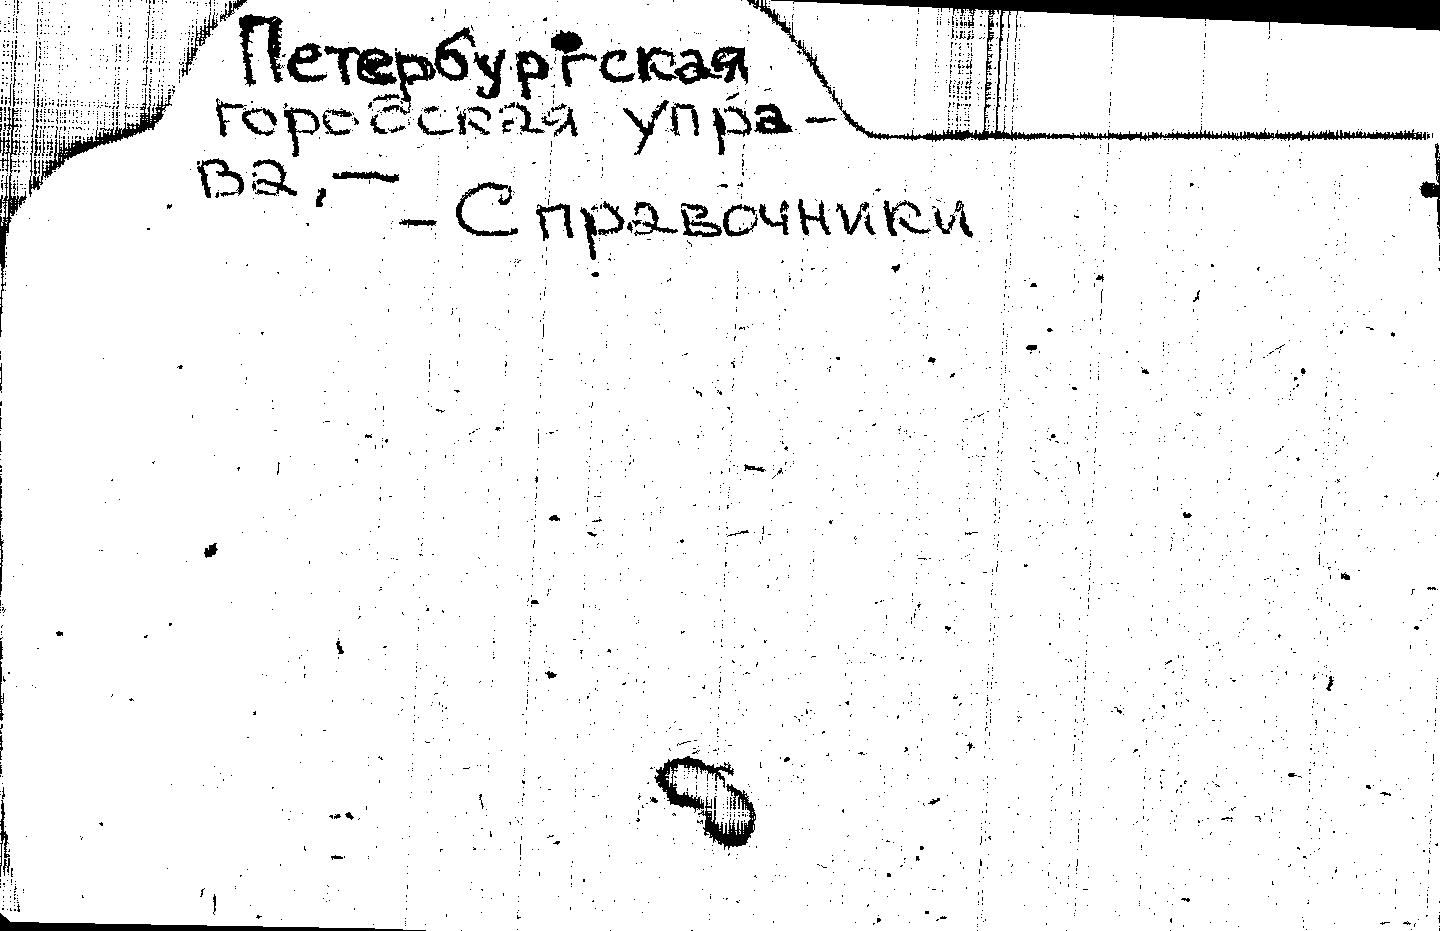 Петербургская
городская упра-
ва,—
– Справочники